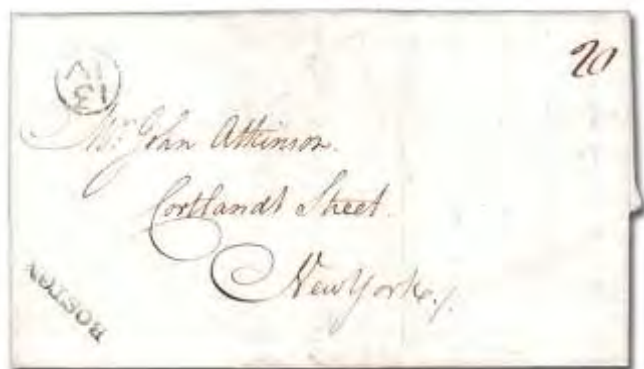 20
13
Mr. John Atkinson.
Cortlandt Street.
New York.
BOSTON